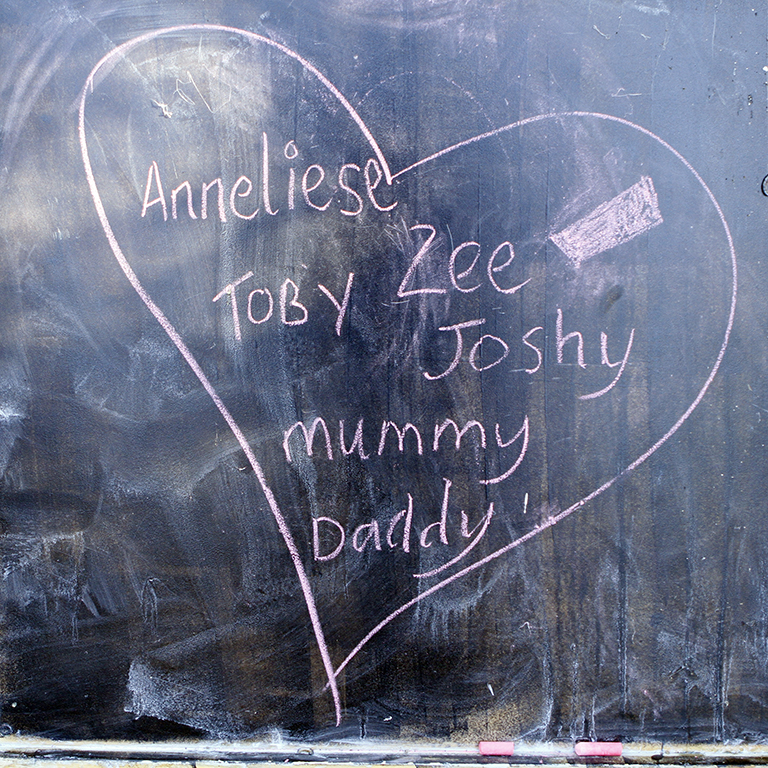 Anneliese
Zee
TOBY
Joshy
mummy
Daddy